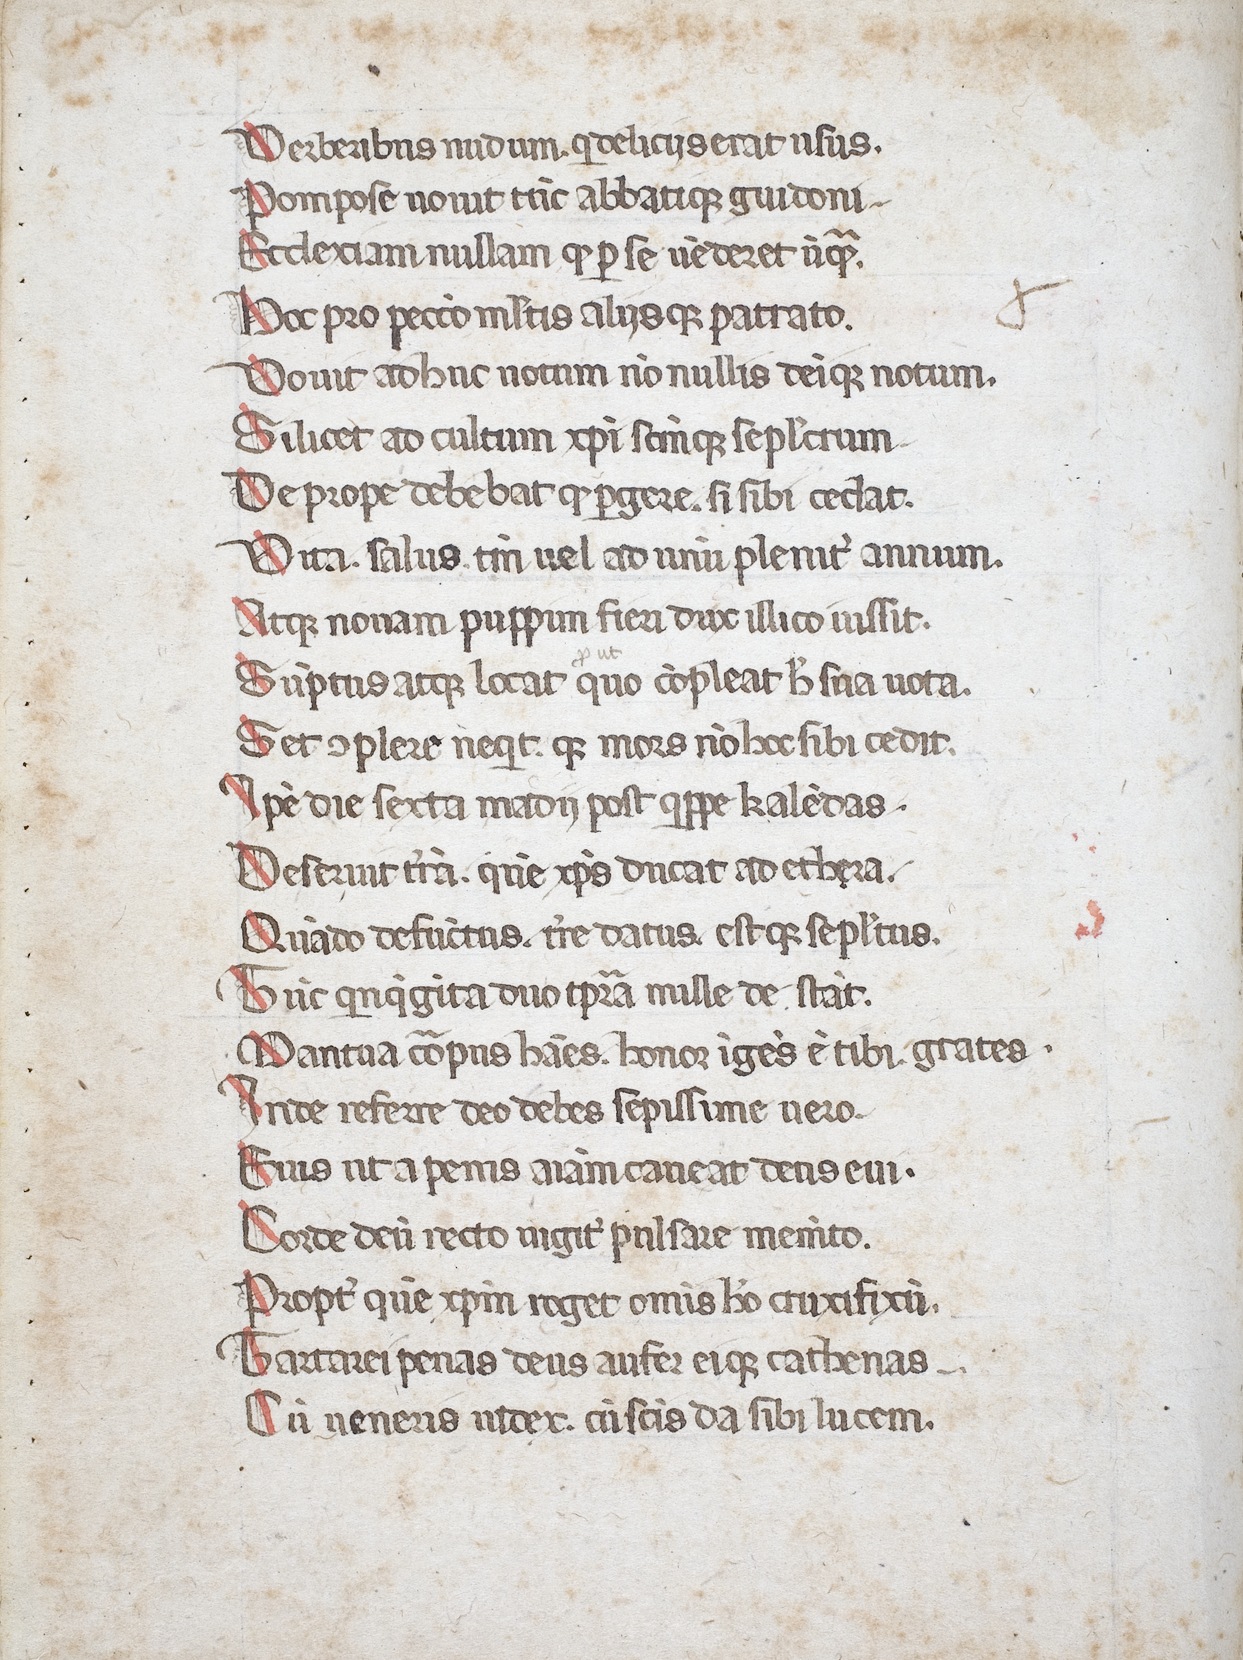 Verberibus nudum. q delicijs erat usus.
Pompose uouit tūc abbatiq; guidoni
Ecclexiam nullam qͥ p se uēderet ūq̃.
Hoc pro peccō mltis alijsq; patrato.
Vouit adhuc notum nō nullis deīq; notum.
Silicet ad cultum xp̄i scm̄q; sepl'crum
De prope debebat qͥ pgere. si sibi cedat.
Vita. salus. tm̄ uel ad unū plenit' annum.
Atq; nouam puppim fieri dux illico iussit.
p ut
Sūptus atq; locat quo cōpleat h̄ sua uota.
Set ɔplere neqͥt. q; mors nō hoc sibi cedit.
Ipē die sexta madij post qͥppe kalēdas.
Deseruit trr̄ā. quē xp̄s ducat ad ethera.
Quādo defūctus. tr̄re datus. estq; sepl'tus.
Tūc qͥnqͣgīta duo tpr̄ã mille de stāt.
Mantua cōpus hn̄es. honor īgēs ē tibi. grates.
Inde referre deo debes sepissime uero.
Euis ut a penis aīam caueat deus eui.
Corde deū recto uigit' pulsare memēto.
Propt' quē xp̄m roget omīs hō cruxifixū.
Tartarei penas deus aufer eiq; cathenas
Cū ueneris iudex. cū scīs da sibi lucem.